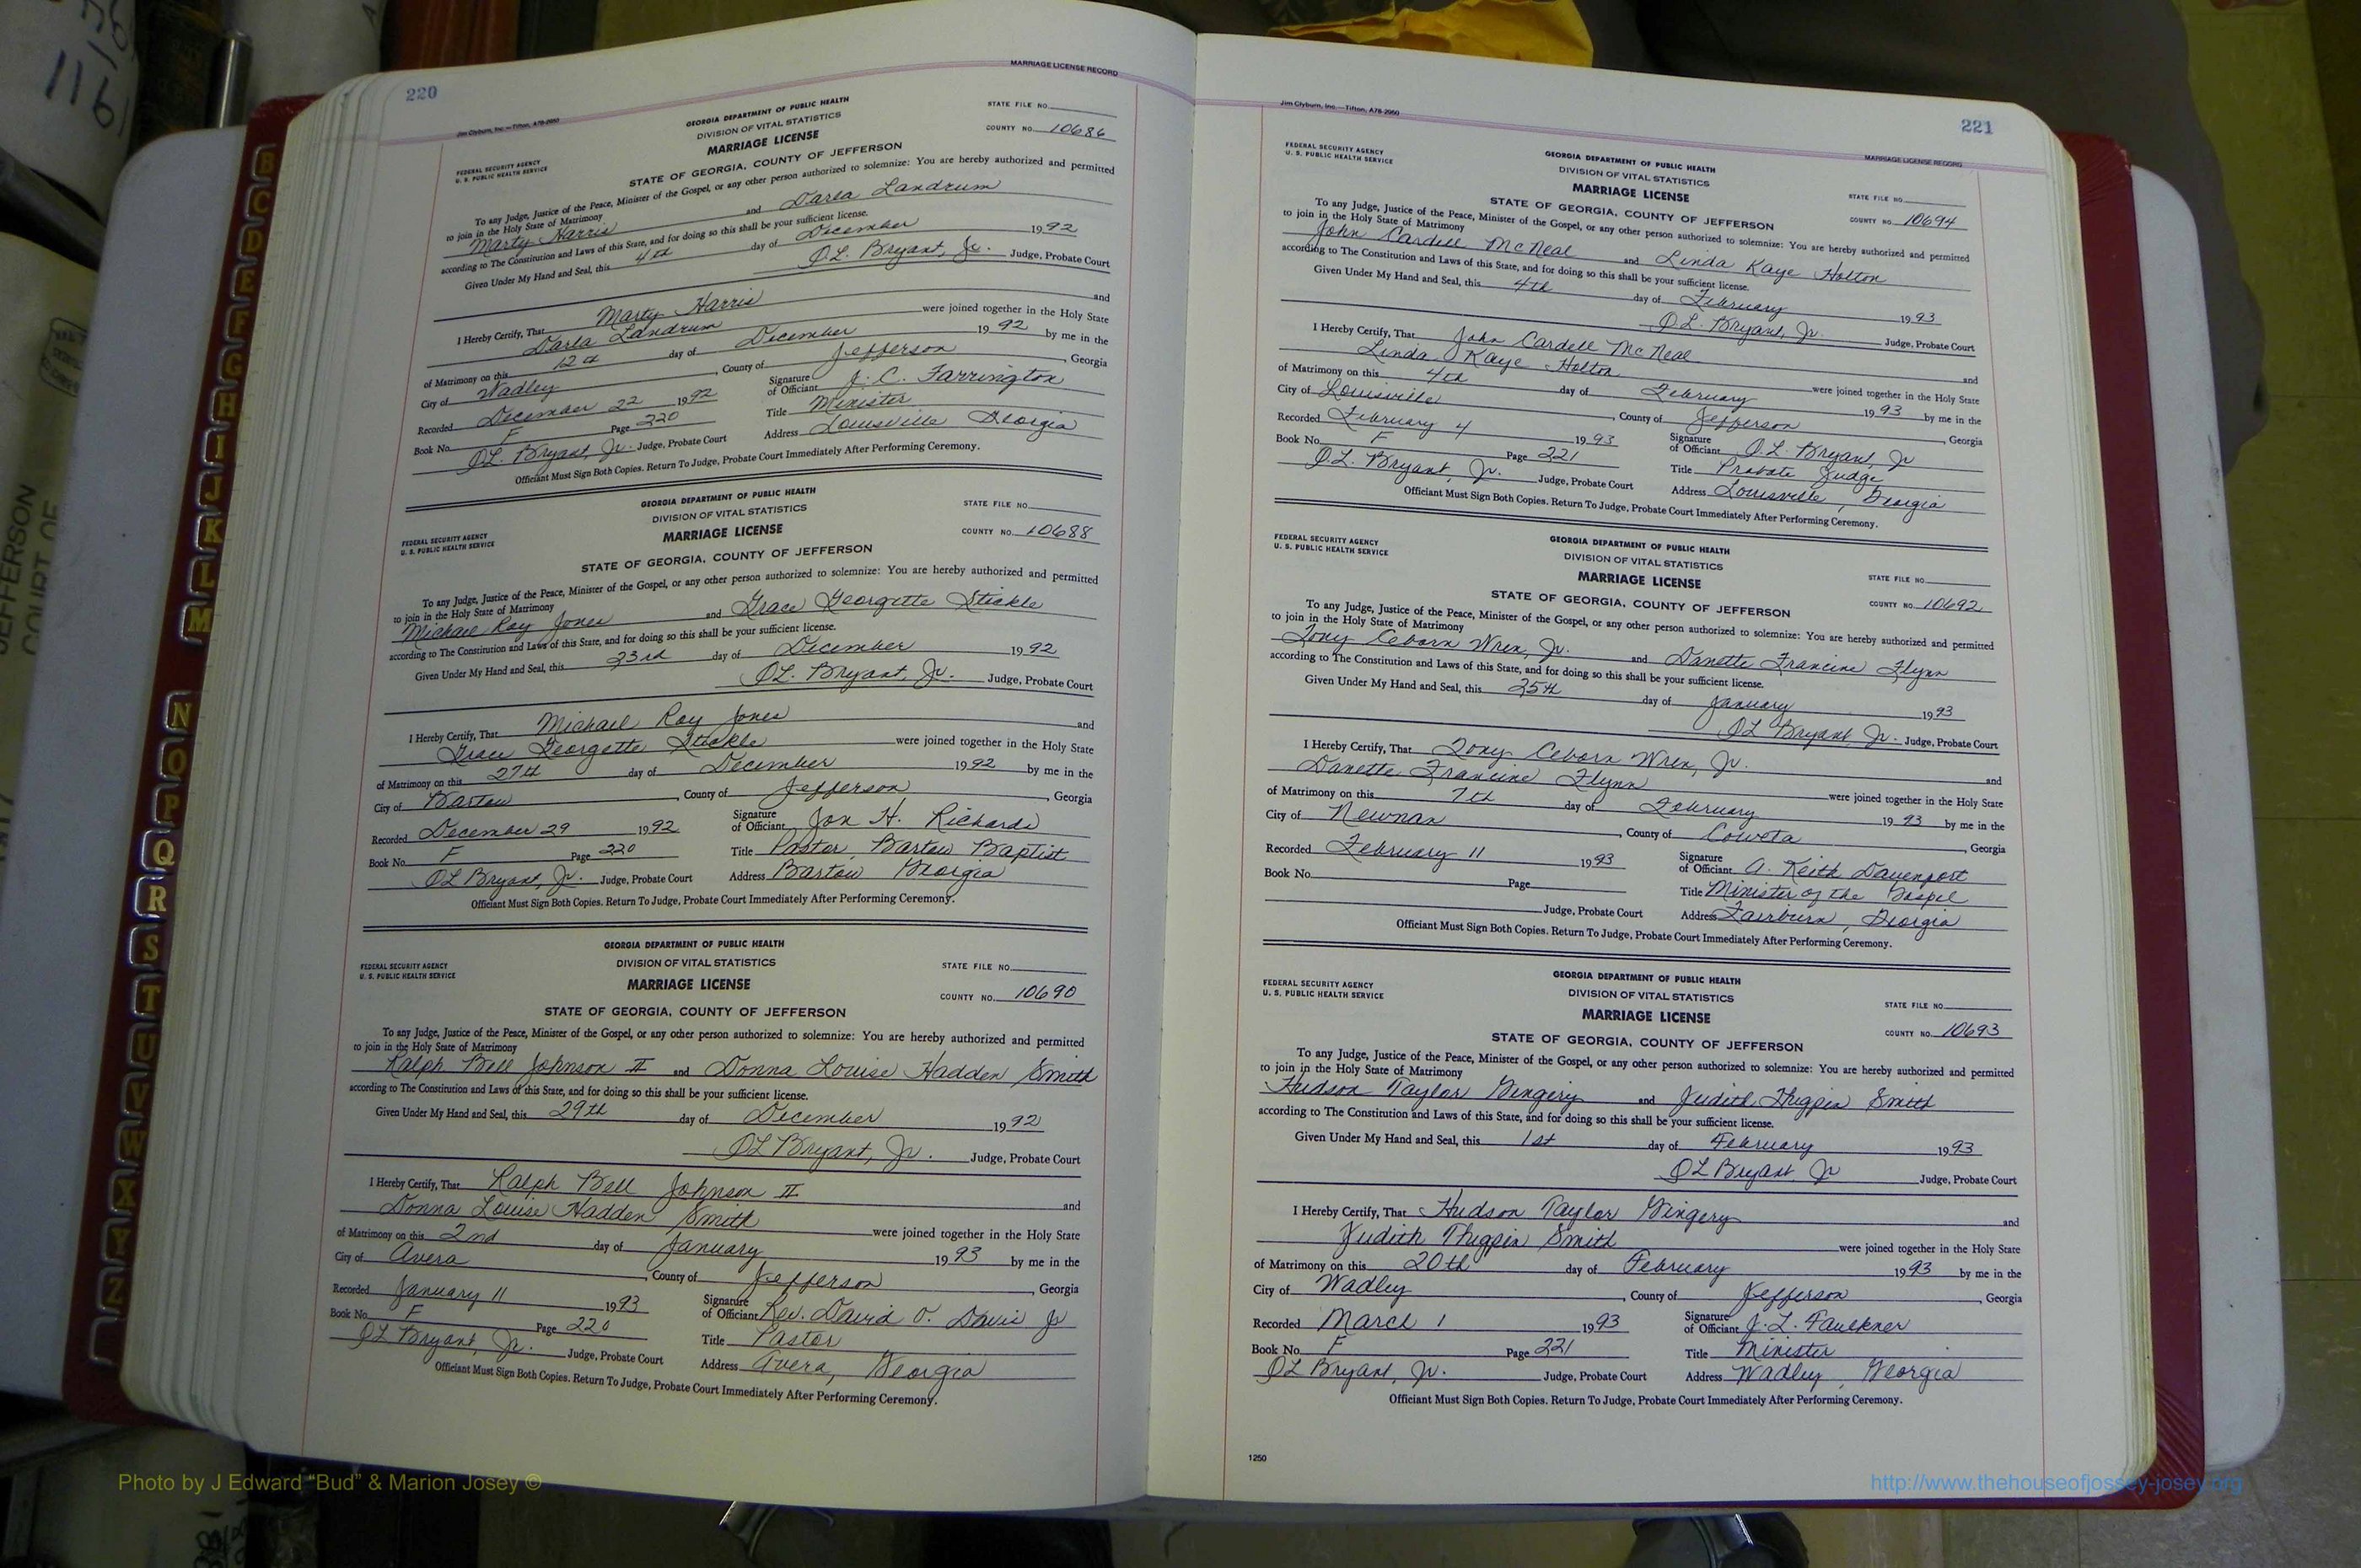 220
MARRIAGE LICENSE RECORD
Jim Clyburn, Inc.—Tifton, A78-2960
GEORGIA DEPARTMENT OF PUBLIC HEALTH
DIVISION OF VITAL STATISTICS
MARRIAGE LICENSE
STATE FILE NO.
COUNTY NO. 10686
FEDERAL SECURITY AGENCY
U. S. PUBLIC HEALTH SERVICE
STATE OF GEORGIA, COUNTY OF JEFFERSON
To any Judge, Justice of the Peace, Minister of the Gospel, or any other person authorized to solemnize: You are hereby authorized and permitted
to join in the Holy State of Matrimony
Marty Harris and Darla Landrum
according to The Constitution and Laws of this State, and for doing so this shall be your sufficient license.
Given Under My Hand and Seal, this 4th day of December 1992
O.L. Bryant, Jr. Judge, Probate Court
I Hereby Certify, That Marty Harris and
Darla Landrum were joined together in the Holy State
of Matrimony on this 12th day of December 1992 by me in the
City of Wadley, County of Jefferson, Georgia
Recorded December 22 1992 Signature of Officiant J. C. Farrington
Book No. F Page 220 Title Minister
O.L. Bryant, Jr. Judge, Probate Court Address Louisville Georgia
Officiant Must Sign Both Copies. Return To Judge, Probate Court Immediately After Performing Ceremony.
GEORGIA DEPARTMENT OF PUBLIC HEALTH
DIVISION OF VITAL STATISTICS
MARRIAGE LICENSE
STATE FILE NO.
COUNTY NO. 10688
FEDERAL SECURITY AGENCY
U. S. PUBLIC HEALTH SERVICE
STATE OF GEORGIA, COUNTY OF JEFFERSON
To any Judge, Justice of the Peace, Minister of the Gospel, or any other person authorized to solemnize: You are hereby authorized and permitted
to join in the Holy State of Matrimony
Michael Ray Jones and Grace Georgette Stickle
according to The Constitution and Laws of this State, and for doing so this shall be your sufficient license.
Given Under My Hand and Seal, this 23rd day of December 1992
O.L. Bryant, Jr. Judge, Probate Court
I Hereby Certify, That Michael Ray Jones and
Grace Georgette Stickle were joined together in the Holy State
of Matrimony on this 27th day of December 1992 by me in the
City of Bartow, County of Jefferson, Georgia
Recorded December 29 1992 Signature of Officiant Jon H. Richards
Book No. F Page 220 Title Pastor, Bartow Baptist
O.L. Bryant, Jr. Judge, Probate Court Address Bartow Georgia
Officiant Must Sign Both Copies. Return To Judge, Probate Court Immediately After Performing Ceremony.
GEORGIA DEPARTMENT OF PUBLIC HEALTH
DIVISION OF VITAL STATISTICS
MARRIAGE LICENSE
STATE FILE NO.
COUNTY NO. 10690
FEDERAL SECURITY AGENCY
U. S. PUBLIC HEALTH SERVICE
STATE OF GEORGIA, COUNTY OF JEFFERSON
To any Judge, Justice of the Peace, Minister of the Gospel, or any other person authorized to solemnize: You are hereby authorized and permitted
to join in the Holy State of Matrimony
Ralph Bell Johnson II and Donna Louise Hadden Smith
according to The Constitution and Laws of this State, and for doing so this shall be your sufficient license.
Given Under My Hand and Seal, this 29th day of December 1992
O L Bryant, Jr. Judge, Probate Court
I Hereby Certify, That Ralph Bell Johnson II and
Donna Louise Hadden Smith were joined together in the Holy State
of Matrimony on this 2nd day of January 1993 by me in the
City of Avera, County of Jefferson, Georgia
Recorded January 11 1993 Signature of Officiant Rev. David O. Davis Jr
Book No. F Page 220 Title Pastor
O L Bryant, Jr. Judge, Probate Court Address Avera, Georgia
Officiant Must Sign Both Copies. Return To Judge, Probate Court Immediately After Performing Ceremony.
Jim Clyburn, Inc.—Tifton, A78-2960
221
MARRIAGE LICENSE RECORD
FEDERAL SECURITY AGENCY
U. S. PUBLIC HEALTH SERVICE
GEORGIA DEPARTMENT OF PUBLIC HEALTH
DIVISION OF VITAL STATISTICS
MARRIAGE LICENSE
STATE FILE NO.
COUNTY NO. 10694
STATE OF GEORGIA, COUNTY OF JEFFERSON
To any Judge, Justice of the Peace, Minister of the Gospel, or any other person authorized to solemnize: You are hereby authorized and permitted
to join in the Holy State of Matrimony
John Cardell McNeal and Linda Kaye Holton
according to The Constitution and Laws of this State, and for doing so this shall be your sufficient license.
Given Under My Hand and Seal, this 4th day of February 1993
O.L. Bryant, Jr. Judge, Probate Court
I Hereby Certify, That John Cardell McNeal and
Linda Kaye Holton were joined together in the Holy State
of Matrimony on this 4th day of February 1993 by me in the
City of Louisville, County of Jefferson, Georgia
Recorded February 4 1993 Signature of Officiant O.L. Bryant, Jr
Book No. F Page 221 Title Probate Judge
O.L. Bryant, Jr. Judge, Probate Court Address Louisville, Georgia
Officiant Must Sign Both Copies. Return To Judge, Probate Court Immediately After Performing Ceremony.
FEDERAL SECURITY AGENCY
U. S. PUBLIC HEALTH SERVICE
GEORGIA DEPARTMENT OF PUBLIC HEALTH
DIVISION OF VITAL STATISTICS
MARRIAGE LICENSE
STATE FILE NO.
COUNTY NO. 10692
STATE OF GEORGIA, COUNTY OF JEFFERSON
To any Judge, Justice of the Peace, Minister of the Gospel, or any other person authorized to solemnize: You are hereby authorized and permitted
to join in the Holy State of Matrimony
Tony Ceborn Wren, Jr. and Danette Francine Flynn
according to The Constitution and Laws of this State, and for doing so this shall be your sufficient license.
Given Under My Hand and Seal, this 25th day of January 1993
O L Bryant, Jr. Judge, Probate Court
I Hereby Certify, That Tony Ceborn Wren, Jr. and
Danette Francine Flynn were joined together in the Holy State
of Matrimony on this 7th day of February 1993 by me in the
City of Newnan, County of Coweta, Georgia
Recorded February 11 1993 Signature of Officiant A. Keith Davenport
Book No. Page Title Minister of the Gospel
Judge, Probate Court Address Fairburn, Georgia
Officiant Must Sign Both Copies. Return To Judge, Probate Court Immediately After Performing Ceremony.
FEDERAL SECURITY AGENCY
U. S. PUBLIC HEALTH SERVICE
GEORGIA DEPARTMENT OF PUBLIC HEALTH
DIVISION OF VITAL STATISTICS
MARRIAGE LICENSE
STATE FILE NO.
COUNTY NO. 10693
STATE OF GEORGIA, COUNTY OF JEFFERSON
To any Judge, Justice of the Peace, Minister of the Gospel, or any other person authorized to solemnize: You are hereby authorized and permitted
to join in the Holy State of Matrimony
Hudson Taylor Gingery and Judith Thigpin Smith
according to The Constitution and Laws of this State, and for doing so this shall be your sufficient license.
Given Under My Hand and Seal, this 1st day of February 1993
O L Bryant, Jr Judge, Probate Court
I Hereby Certify, That Hudson Taylor Gingery and
Judith Thigpin Smith were joined together in the Holy State
of Matrimony on this 20th day of February 1993 by me in the
City of Wadley, County of Jefferson, Georgia
Recorded March 1 1993 Signature of Officiant J. L. Faulkner
Book No. F Page 221 Title Minister
O L Bryant, Jr. Judge, Probate Court Address Wadley, Georgia
Officiant Must Sign Both Copies. Return To Judge, Probate Court Immediately After Performing Ceremony.
1250
B
C
D
E
F
G
H
I
J
K
L
M
N
O
P
Q
R
S
T
U
V
W
X
Y
Z
JEFFERSON
COURT OF
Photo by J Edward “Bud” & Marion Josey ©
http://www.thehouseofjossey-josey.org